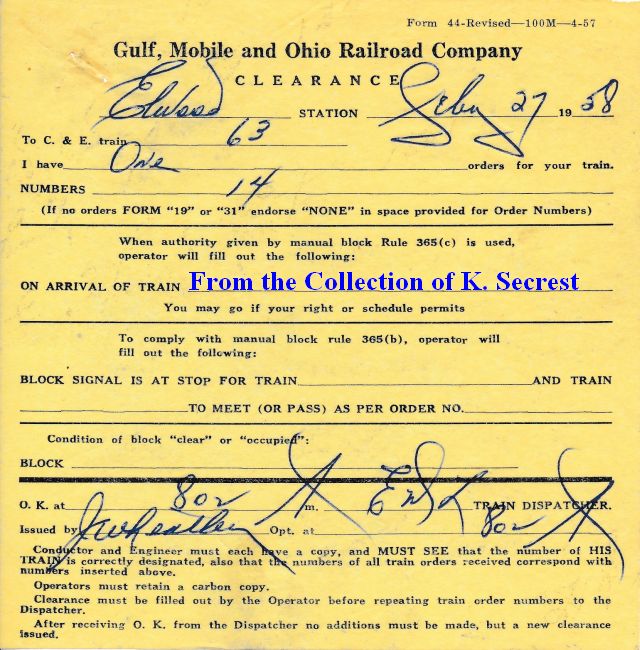 Form 44-Revised—100M—4-57
Gulf, Mobile and Ohio Railroad Company
CLEARANCE
Elwood STATION Feby 27 1958
To C. & E. train 63
I have One orders for your train.
NUMBERS 14
(If no orders FORM "19" or "31" endorse "NONE" in space provided for Order Numbers)
When authority given by manual block Rule 365(c) is used,
operator will fill out the following:
ON ARRIVAL OF TRAIN From the Collection of K. Secrest
You may go if your right or schedule permits
To comply with manual block rule 365(b), operator will
fill out the following:
BLOCK SIGNAL IS AT STOP FOR TRAIN AND TRAIN
TO MEET (OR PASS) AS PER ORDER NO.
Condition of block "clear" or "occupied":
BLOCK
O. K. at 802 A m. TRAIN DISPATCHER.
Issued by Opt. at 802 A
Conductor and Engineer must each have a copy, and MUST SEE that the number of HIS
TRAIN is correctly designated, also that the numbers of all train orders received correspond with
numbers inserted above.
Operators must retain a carbon copy.
Clearance must be filled out by the Operator before repeating train order numbers to the
Dispatcher.
After receiving O. K. from the Dispatcher no additions must be made, but a new clearance
issued.